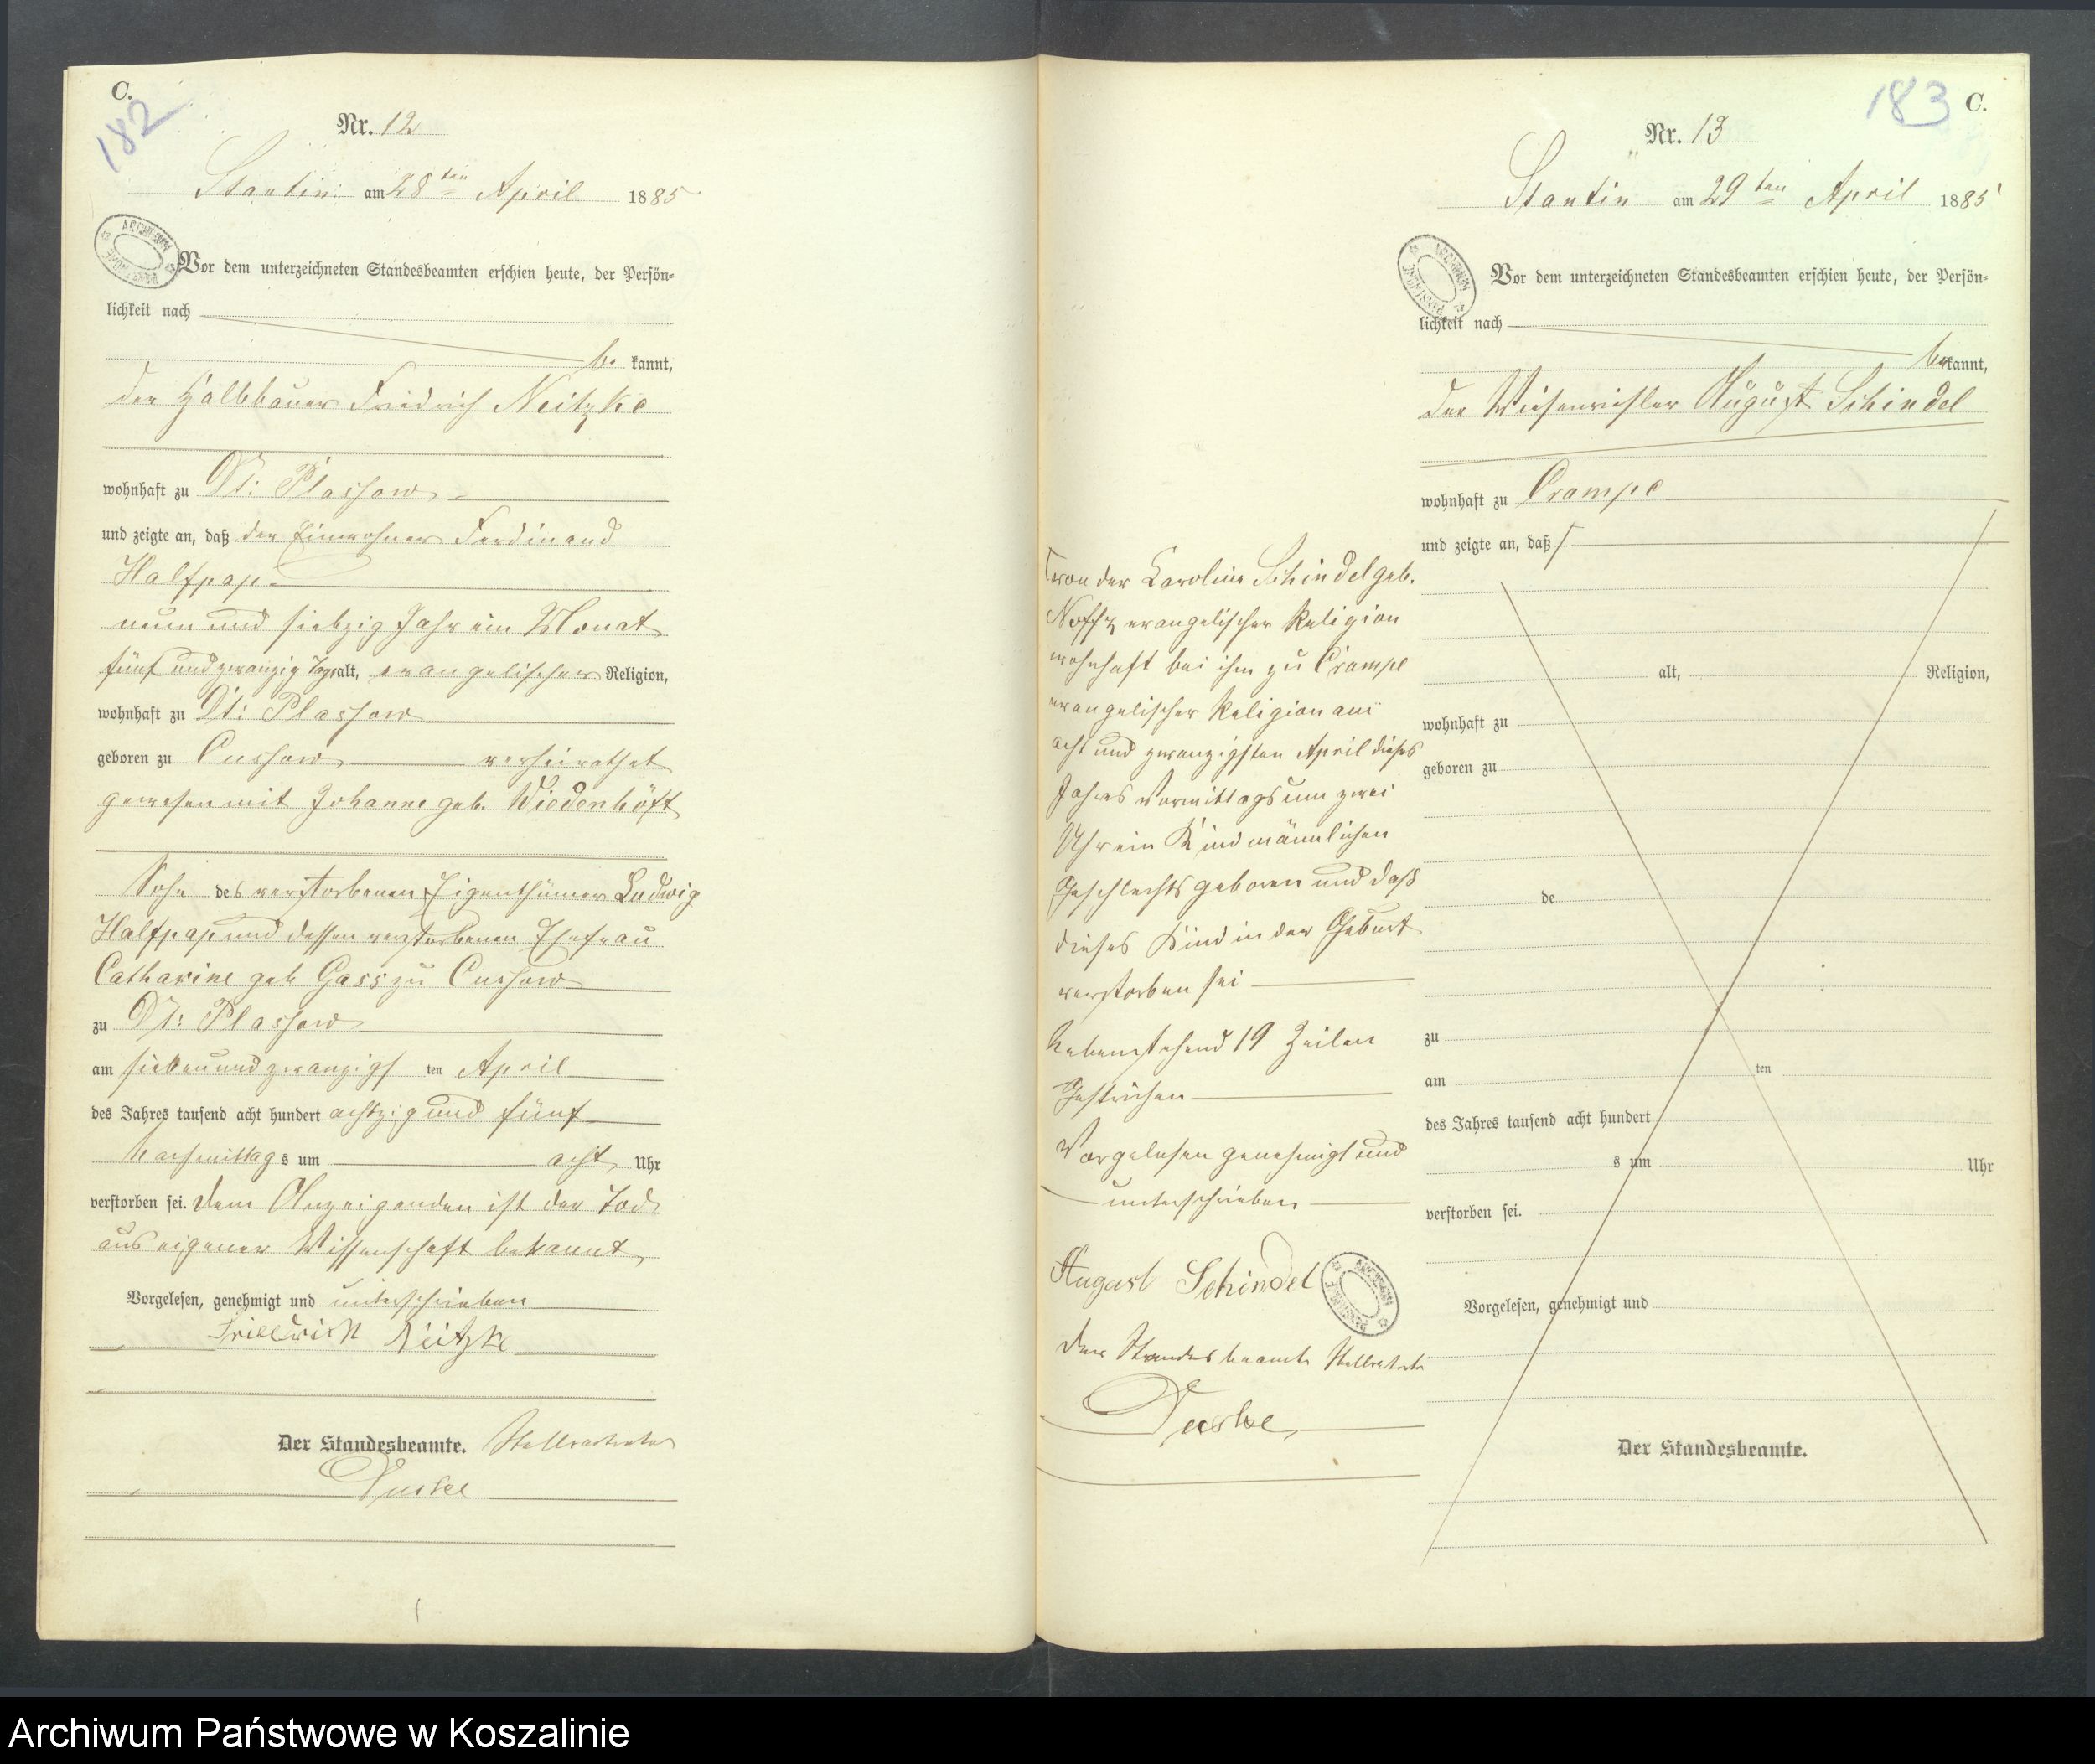 C.
182
Nr. 12
Stantin am 28ten April 1885
Vor dem unterzeichneten Standesbeamten erschien heute, der Persön-
lichkeit nach
be kannt,
der Halbbauer Friedrich Neitzke
wohnhaft zu Dt: Plassow
und zeigte an, daß der Einwohner Ferdinand
Halfpap
neun und siebzig Jahr ein Monat
fünf und zwanzig Tage alt, evangelischer Religion,
wohnhaft zu Dt: Plassow
geboren zu Cussow verheirathet
gewesen mit Johanne geb. Wiedenhöft
Sohn des verstorbenen Eigenthümer Ludwig
Halfpap und dessen verstorbenen Ehefrau
Catharine geb Gass zu Cussow
zu Dt: Plassow
am sieben und zwanzigs ten April
des Jahres tausend acht hundert achtzig und fünf
Nachmittag s um acht Uhr
verstorben sei. Dem Anzeigenden ist der Tod
aus eigener Wissenschaft bekannt
Vorgelesen, genehmigt und unterschrieben
Friedrich Neitzke
Der Standesbeamte. Stellvertreter
183 C.
Nr. 13
Stantin am 29ten April 1885
Vor dem unterzeichneten Standesbeamten erschien heute, der Persön-
lichkeit nach
be kannt,
der Wiesenriesler August Schindel
wohnhaft zu Crampe
und zeigte an, daß
von der Caroline Schindel geb.
Noffz evangelischer Religion
wohnhaft bei ihm zu Crampe
evangelischer Religion am
acht und zwanzigsten April dieses
Jahres Vormittags um zwei
Uhr ein Kind männlichen
Geschlechts geboren und daß
dieses Kind in der Geburt
verstorben sei
Nebenstehend 19 Zeilen
Gestrichen
Vorgelesen genehmigt und
unterschrieben
August Schindel
Der Standesbeamte Stellvertreter
alt, Religion,
wohnhaft zu
geboren zu
de
zu
am ten
des Jahres tausend acht hundert
s um Uhr
verstorben sei.
Vorgelesen, genehmigt und
Der Standesbeamte.
Archiwum Państwowe w Koszalinie